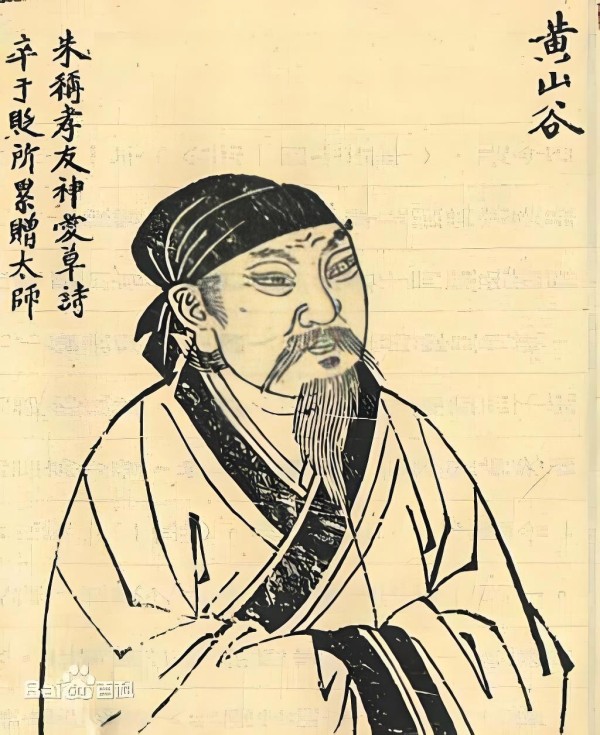 黄山谷
朱稱孝友神愛草詩
卒于貶所累贈太師
Bai百科